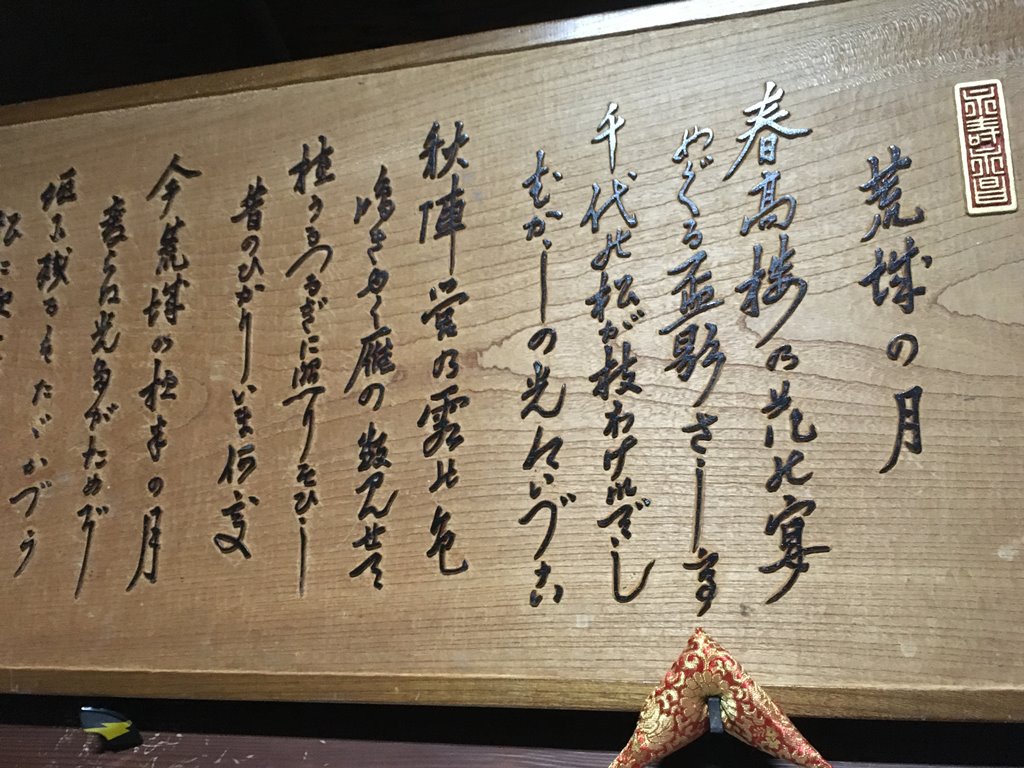 荒城の月
春高楼の花の宴
めぐる盃影さして
千代の松が枝わけ出でし
むかしの光今いづこ
秋陣営の霜の色
鳴きゆく雁の数見せて
植うるつるぎに照りそひし
昔のひかりいま何処
今荒城の夜半の月
変らぬ光多がためぞ
垣に残るはたゞかづら
松に